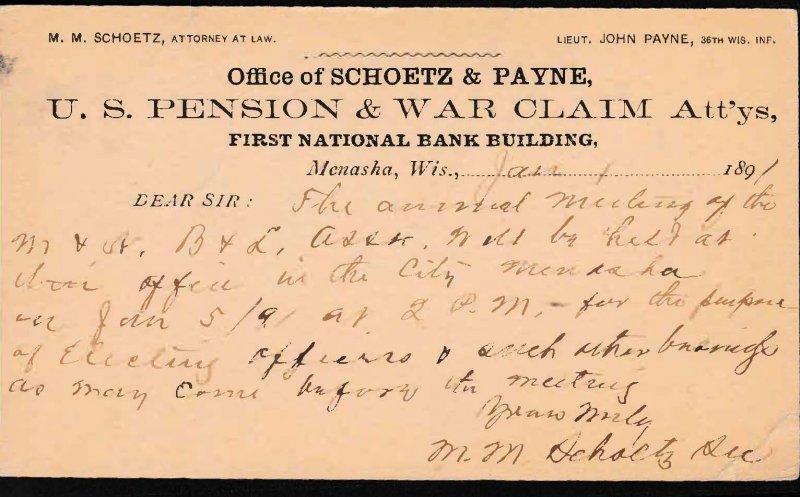 M. M. SCHOETZ, ATTORNEY AT LAW. LIEUT. JOHN PAYNE, 36TH WIS. INF.
Office of SCHOETZ & PAYNE,
U. S. PENSION & WAR CLAIM Att'ys,
FIRST NATIONAL BANK BUILDING,
Menasha, Wis., Jan 1 1891
DEAR SIR: The annual Meeting of the
M & N. B & L, Assn. Will be held at
their office in the City Menasha
on Jan 5/91 at 2 P.M, - for the purpose
of Electing officers & such other business
as may come before the meeting
Yours Truly
M. M Schoetz Sec